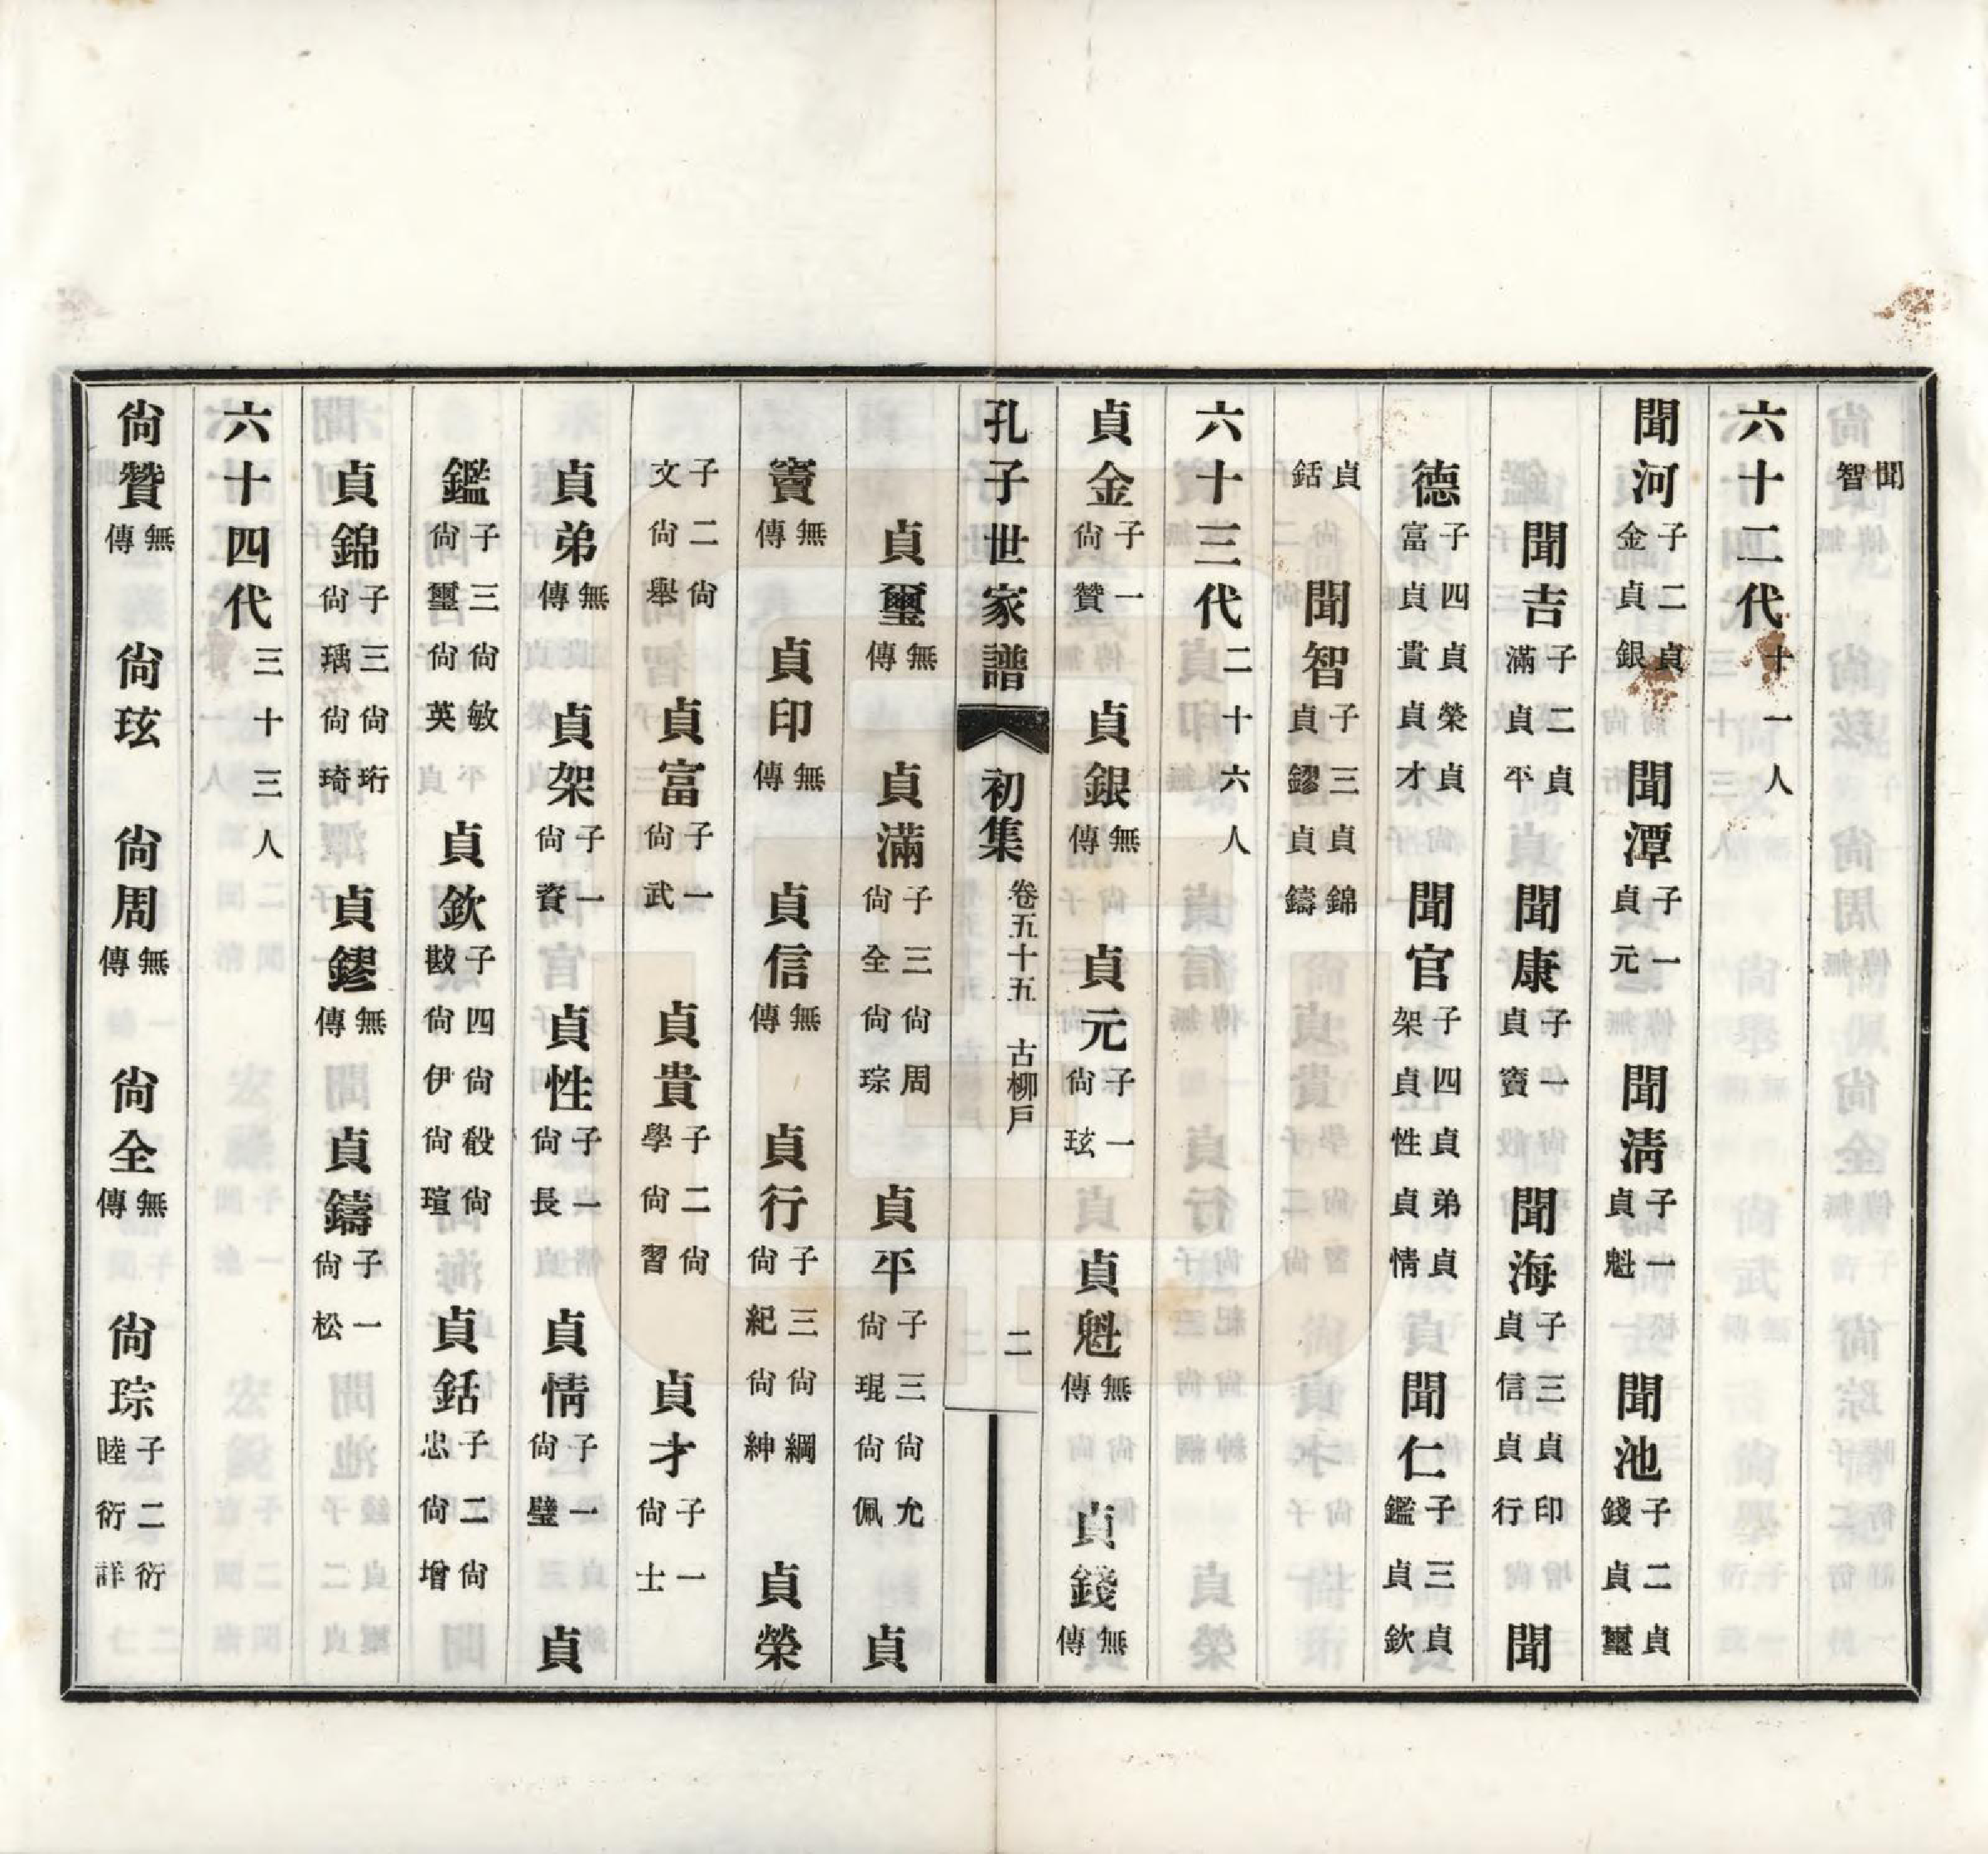 聞智
六十二代十一人
聞河子二貞金貞銀　聞潭子一貞元　聞淸子一貞魁　聞池子二貞錢貞璽
聞吉子二貞滿貞平　聞康子一貞寶　聞海子三貞印貞信貞行　聞
德子四貞榮貞富貞貴貞才　聞官子四貞弟貞架貞性貞情　聞仁子三貞鑑貞欽
貞銛　聞智子三貞錦貞鏐貞鑄
六十三代二十六人
貞金子一尙贊　貞銀無傳　貞元子一尙玹　貞魁無傳　貞錢無傳
孔子世家譜　初集　卷五十五　古柳戶　二
貞璽無傳　貞滿子三尙周尙全尙琮　貞平子三尙允尙琨尙佩　貞
寶無傳　貞印無傳　貞信無傳　貞行子三尙綱尙紀尙紳　貞榮
子二尙文尙舉　貞富子一尙武　貞貴子二尙學尙習　貞才子一尙士　
貞弟無傳　貞架子一尙資　貞性子一尙長　貞情子一尙璧　貞
鑑子三尙敏尙璽尙英　貞欽子四尙毅尙戡尙伊尙瑄　貞銛子二尙忠尙增
貞錦子三尙珩尙瑀尙琦　貞鏐無傳　貞鑄子一尙松
六十四代三十三人
尙贊無傳　尙玹　尙周無傳　尙全無傳　尙琮子二衍睦衍詳